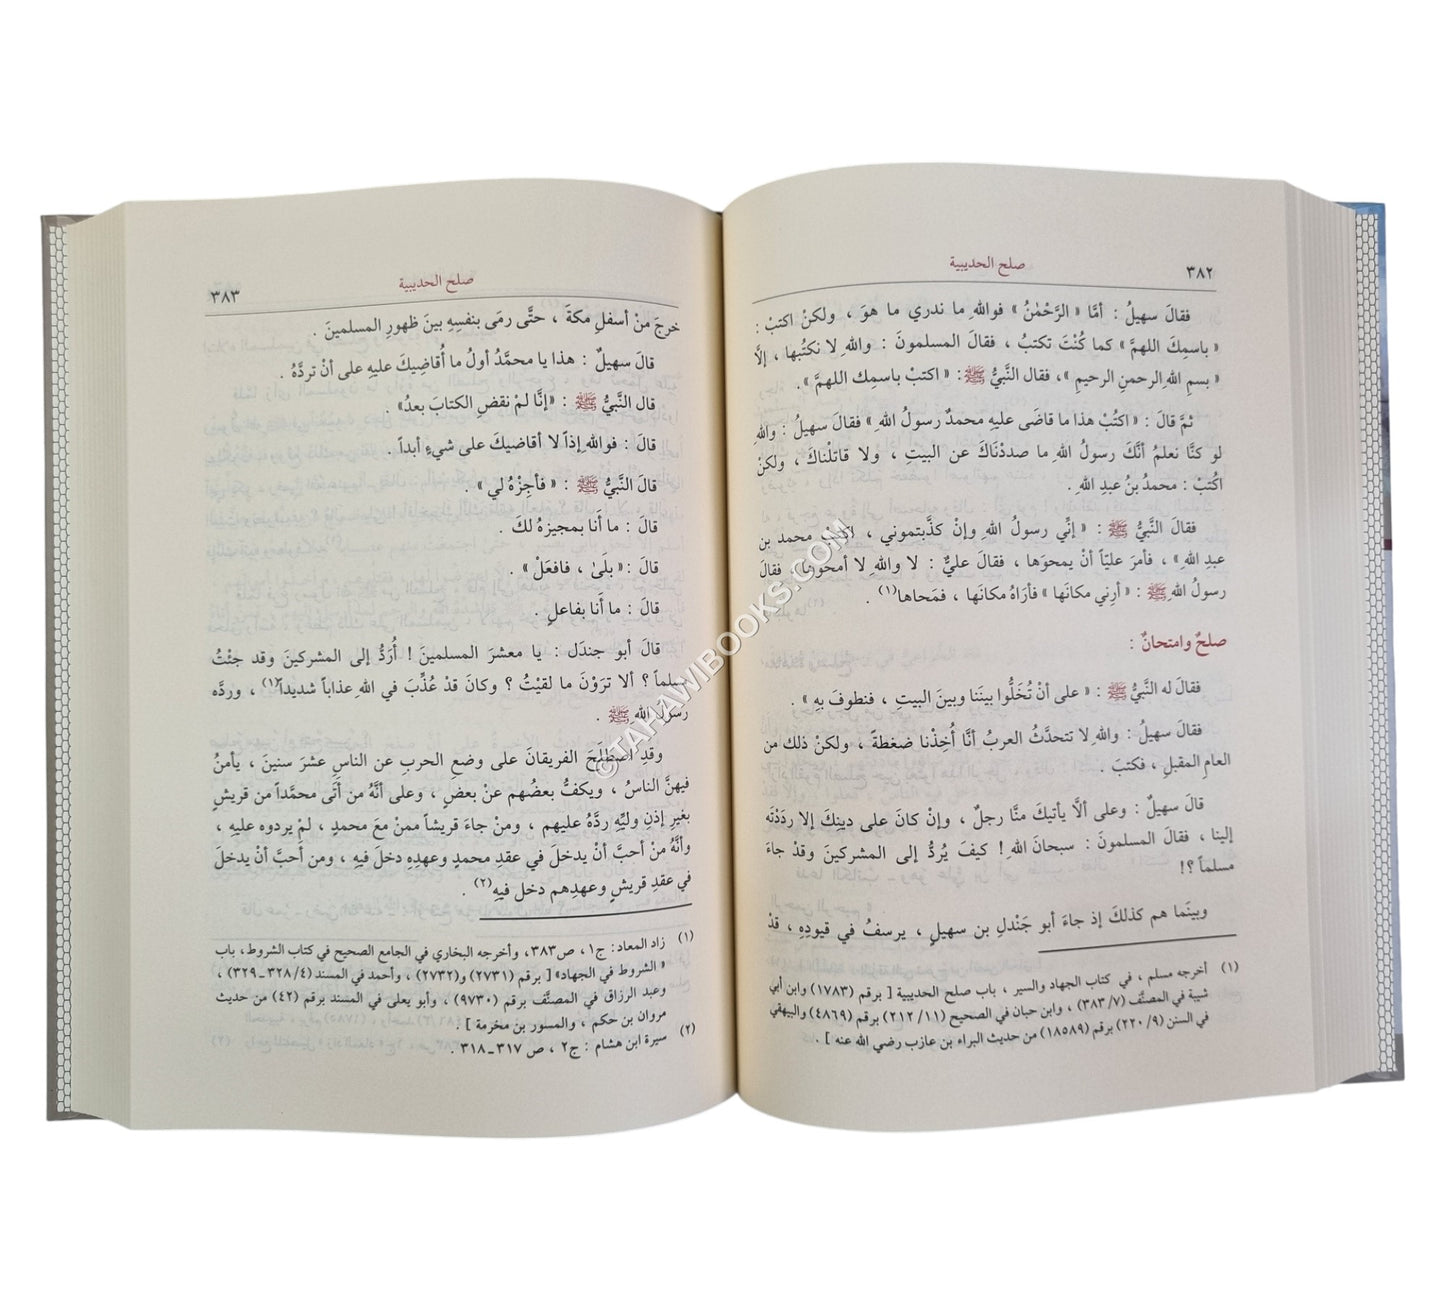 ٣٨٢
صلح الحديبية
فقالَ سهيلُ : أمَّا « الرَّحْمٰنُ » فواللهِ ما ندري ما هوَ ، ولكنْ اكتبْ :
« باسمِكَ اللهمَّ » كما كُنْتَ تكتبُ ، فقالَ المسلمونَ : واللهِ لا نكتُبها ، إلَّا
« بسمِ اللهِ الرحمنِ الرحيمِ » ، فقال النَّبيُّ ﷺ : « اكتبْ باسمِك اللهمَّ » .
ثمَّ قالَ : « اكتُبْ هذا ما قاضَى عليهِ محمدٌ رسولُ اللهِ » فقالَ سهيلُ : واللهِ
لو كنَّا نعلمُ أنَّكَ رسولُ اللهِ ما صددْنَاكَ عن البيتِ ، ولا قاتلْناكَ ، ولكنْ
اكُتبْ : محمدُ بنُ عبدِ اللهِ .
فقالَ النَّبيُّ ﷺ : « إنِّي رسولُ اللهِ وإنْ كذَّبتموني ، اكتبْ محمد بن
عبدِ اللهِ » ، فأمرَ عليّاً أنْ يمحوَها ، فقالَ عليٌّ : لا واللهِ لا أمحوها ، فقالَ
رسولُ اللهِ ﷺ : « أرِني مكانَها » فأرَاهُ مكانَها ، فمَحاها(١) .
صلحٌ وامتحانٌ :
فقالَ له النَّبيُّ ﷺ : « على أنْ تُخَلُّوا بيننَا وبينَ البيتِ ، فنطوفَ بهِ » .
فقالَ سهيلُ : واللهِ لا تتحدَّثُ العربُ أنَّا أُخِذْنا ضغطةً ، ولكنْ ذلك من
العامِ المقبلِ ، فكتبَ .
قالَ سهيلٌ : وعلى ألَّا يأتيكَ منَّا رجلٌ ، وإنْ كانَ على دينِكَ إلا ردَدْتَه
إلينا ، فقالَ المسلمونَ : سبحانَ اللهِ ! كيفَ يُردُّ إلى المشركينَ وقدْ جاءَ
مسلماً ؟!
وبينَما هم كذلكَ إذ جاءَ أبو جَنْدلِ بن سهيلٍ ، يرسفُ في قيودِهِ ، قدْ
(١) أخرجه مسلم ، في كتاب الجهاد والسير ، باب صلح الحديبية [ برقم (١٧٨٣) وابن أبي
شيبة في المصنَّف (٧/ ٣٨٣) ، وابن حبان في الصحيح (١١/ ٢١٢) برقم (٤٨٦٩) والبيهقي
في السنن (٩/ ٢٢٠) برقم (١٨٥٨٩) من حديث البراء بن عازب رضي الله عنه ] .
٣٨٣
صلح الحديبية
خرجَ منْ أسفلِ مكةَ ، حتَّى رمَى بنفسِهِ بينَ ظهورِ المسلمينَ .
قالَ سهيلٌ : هذا يا محمَّدُ أولُ ما أُقاضِيكَ عليهِ على أنْ تردَّهُ .
قال النَّبيُّ ﷺ : «إنَّا لمْ نقضِ الكتابَ بعدُ» .
قالَ : فواللهِ إذاً لا أقاضيكَ على شيءٍ أبداً .
قالَ النَّبيُّ ﷺ : « فأجِزْهُ لي » .
قالَ : ما أنَا بمجيزهُ لكَ .
قالَ : « بلَىٰ ، فافعَلْ » .
قالَ : ما أنَا بفاعلٍ .
قالَ أبو جندَل : يا معشرَ المسلمينَ ! أُرَدُّ إلى المشركينَ وقد جئْتُ
مسلماً ؟ ألا ترَوْنَ ما لقيْتُ ؟ وكانَ قدْ عُذِّبَ في اللهِ عذاباً شديداً(١) ، وردَّه
رسولُ اللهِ ﷺ .
وقدِ اصْطَلَحَ الفريقانَ على وضعِ الحربِ عن الناسِ عشرَ سنينَ ، يأمنُ
فيهنَّ الناسُ ، ويكفُّ بعضُهم عنْ بعضٍ ، وعلى أنَّهُ من أتَى محمَّداً من قريشٍ
بغيرِ إذنِ وليِّهِ ردَّهُ عليهم ، ومنْ جاءَ قريشاً ممنْ معَ محمدٍ ، لمْ يردوه عليهِ ،
وأنَّهُ منْ أحبَّ أنْ يدخلَ في عقدِ محمدٍ وعهدِهِ دخلَ فيهِ ، ومن أحبَّ أنْ يدخلَ
في عقدِ قريشٍ وعهدِهم دخل فيهِ(٢) .
(١) زاد المعاد: ج١، ص٣٨٣، وأخرجه البخاري في الجامع الصحيح في كتاب الشروط، باب
« الشروط في الجهاد» [ برقم (٢٧٣١) و(٢٧٣٢) ، وأحمد في المسند (٤/ ٣٢٨ـ٣٢٩) ،
وعبد الرزاق في المصنَّف برقم (٩٧٣٠) ، وأبو يعلى في المسند برقم (٤٢) من حديث
مروان بن حكم ، والمسور بن مخرمة ] .
(٢) سيرة ابن هشام : ج٢ ، ص ٣١٧ـ٣١٨ .
© TAHAWIBOOKS.COM